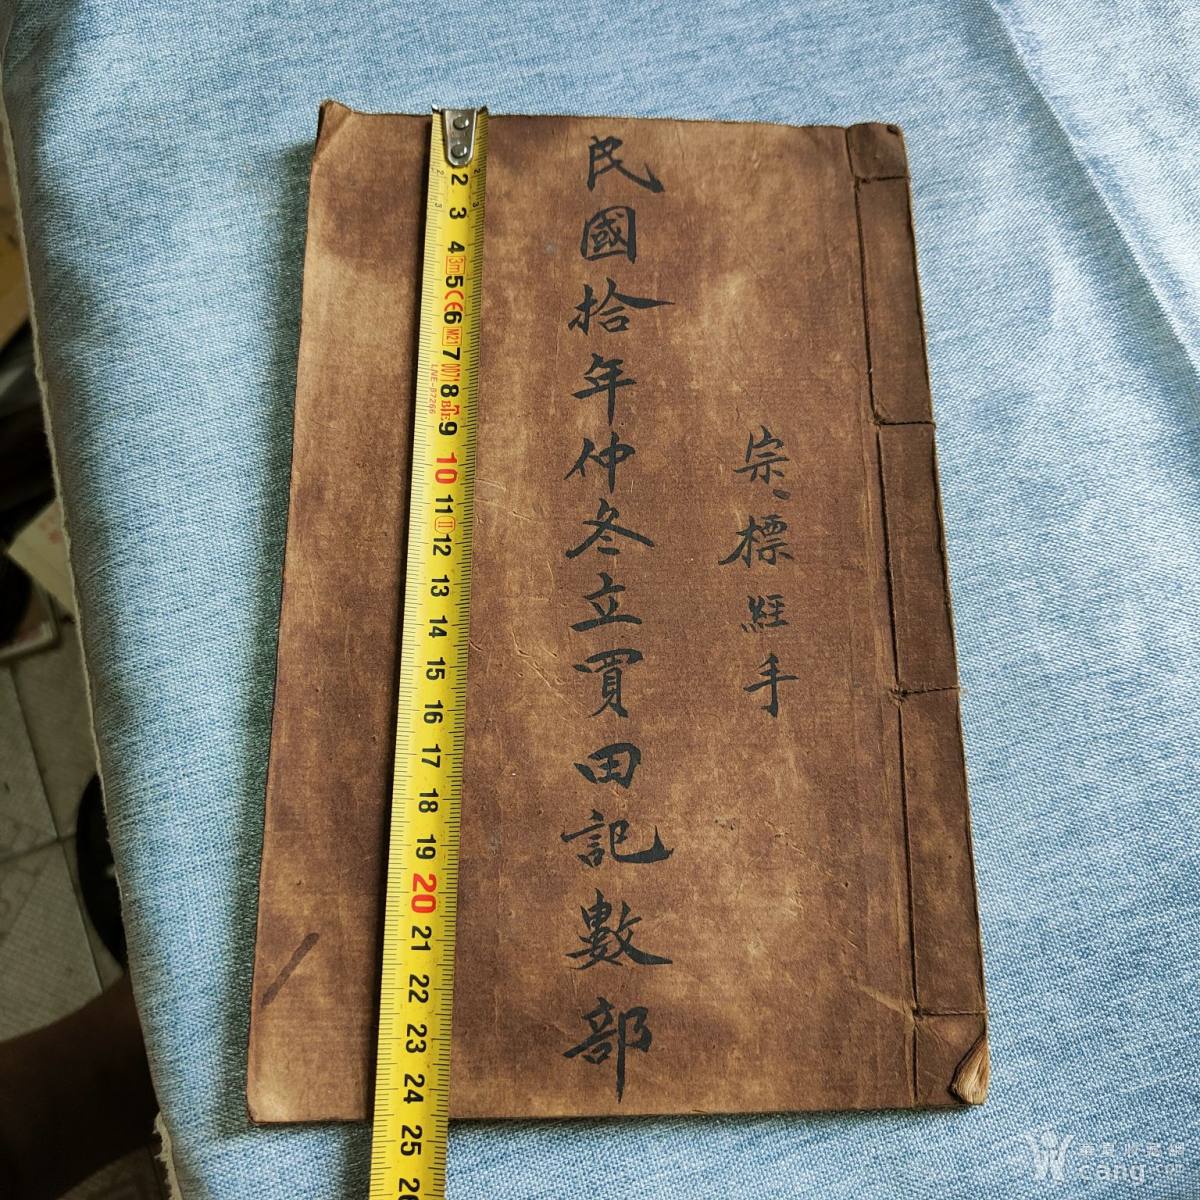 宗標經手
民國拾年仲冬立買田記數部
2
3
4
3m
5
CE
6
M21
7
007
8
BTE
9
LNE-87266
10
11
II
12
13
14
15
16
17
18
19
20
21
22
23
24
25
26
W
cang